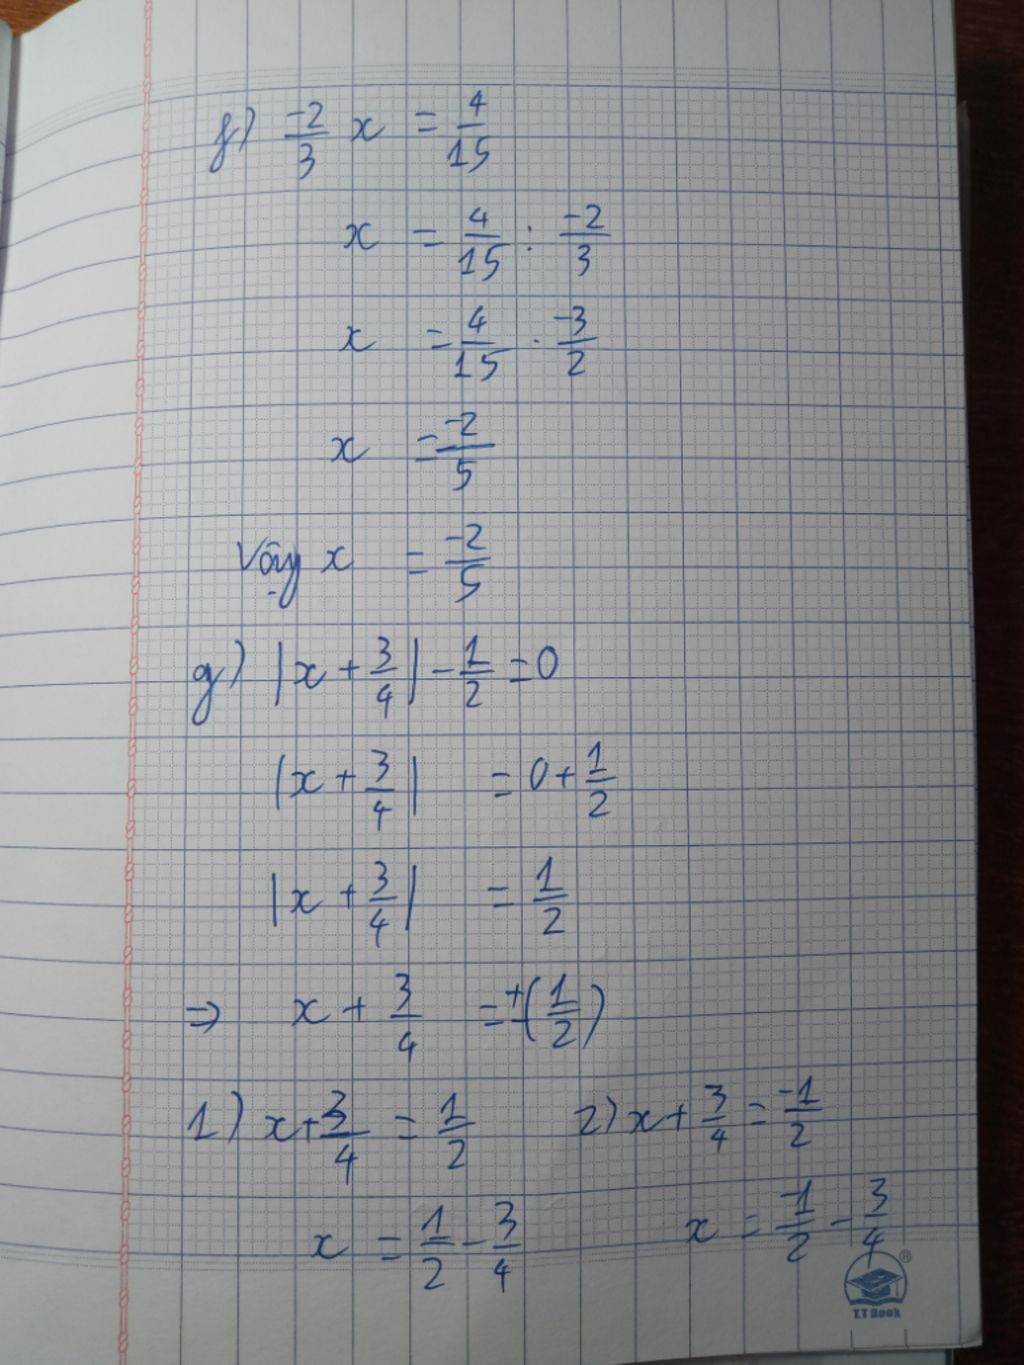 f) -2/3 x = 4/15
x = 4/15 : -2/3
x = 4/15 . -3/2
x = -2/5
Vậy x = -2/5
g) |x + 3/4| - 1/2 = 0
|x + 3/4| = 0 + 1/2
|x + 3/4| = 1/2
⇒ x + 3/4 = ±(1/2)
1) x + 3/4 = 1/2
x = 1/2 - 3/4
2) x + 3/4 = -1/2
x = -1/2 - 3/4
®
T.T Book